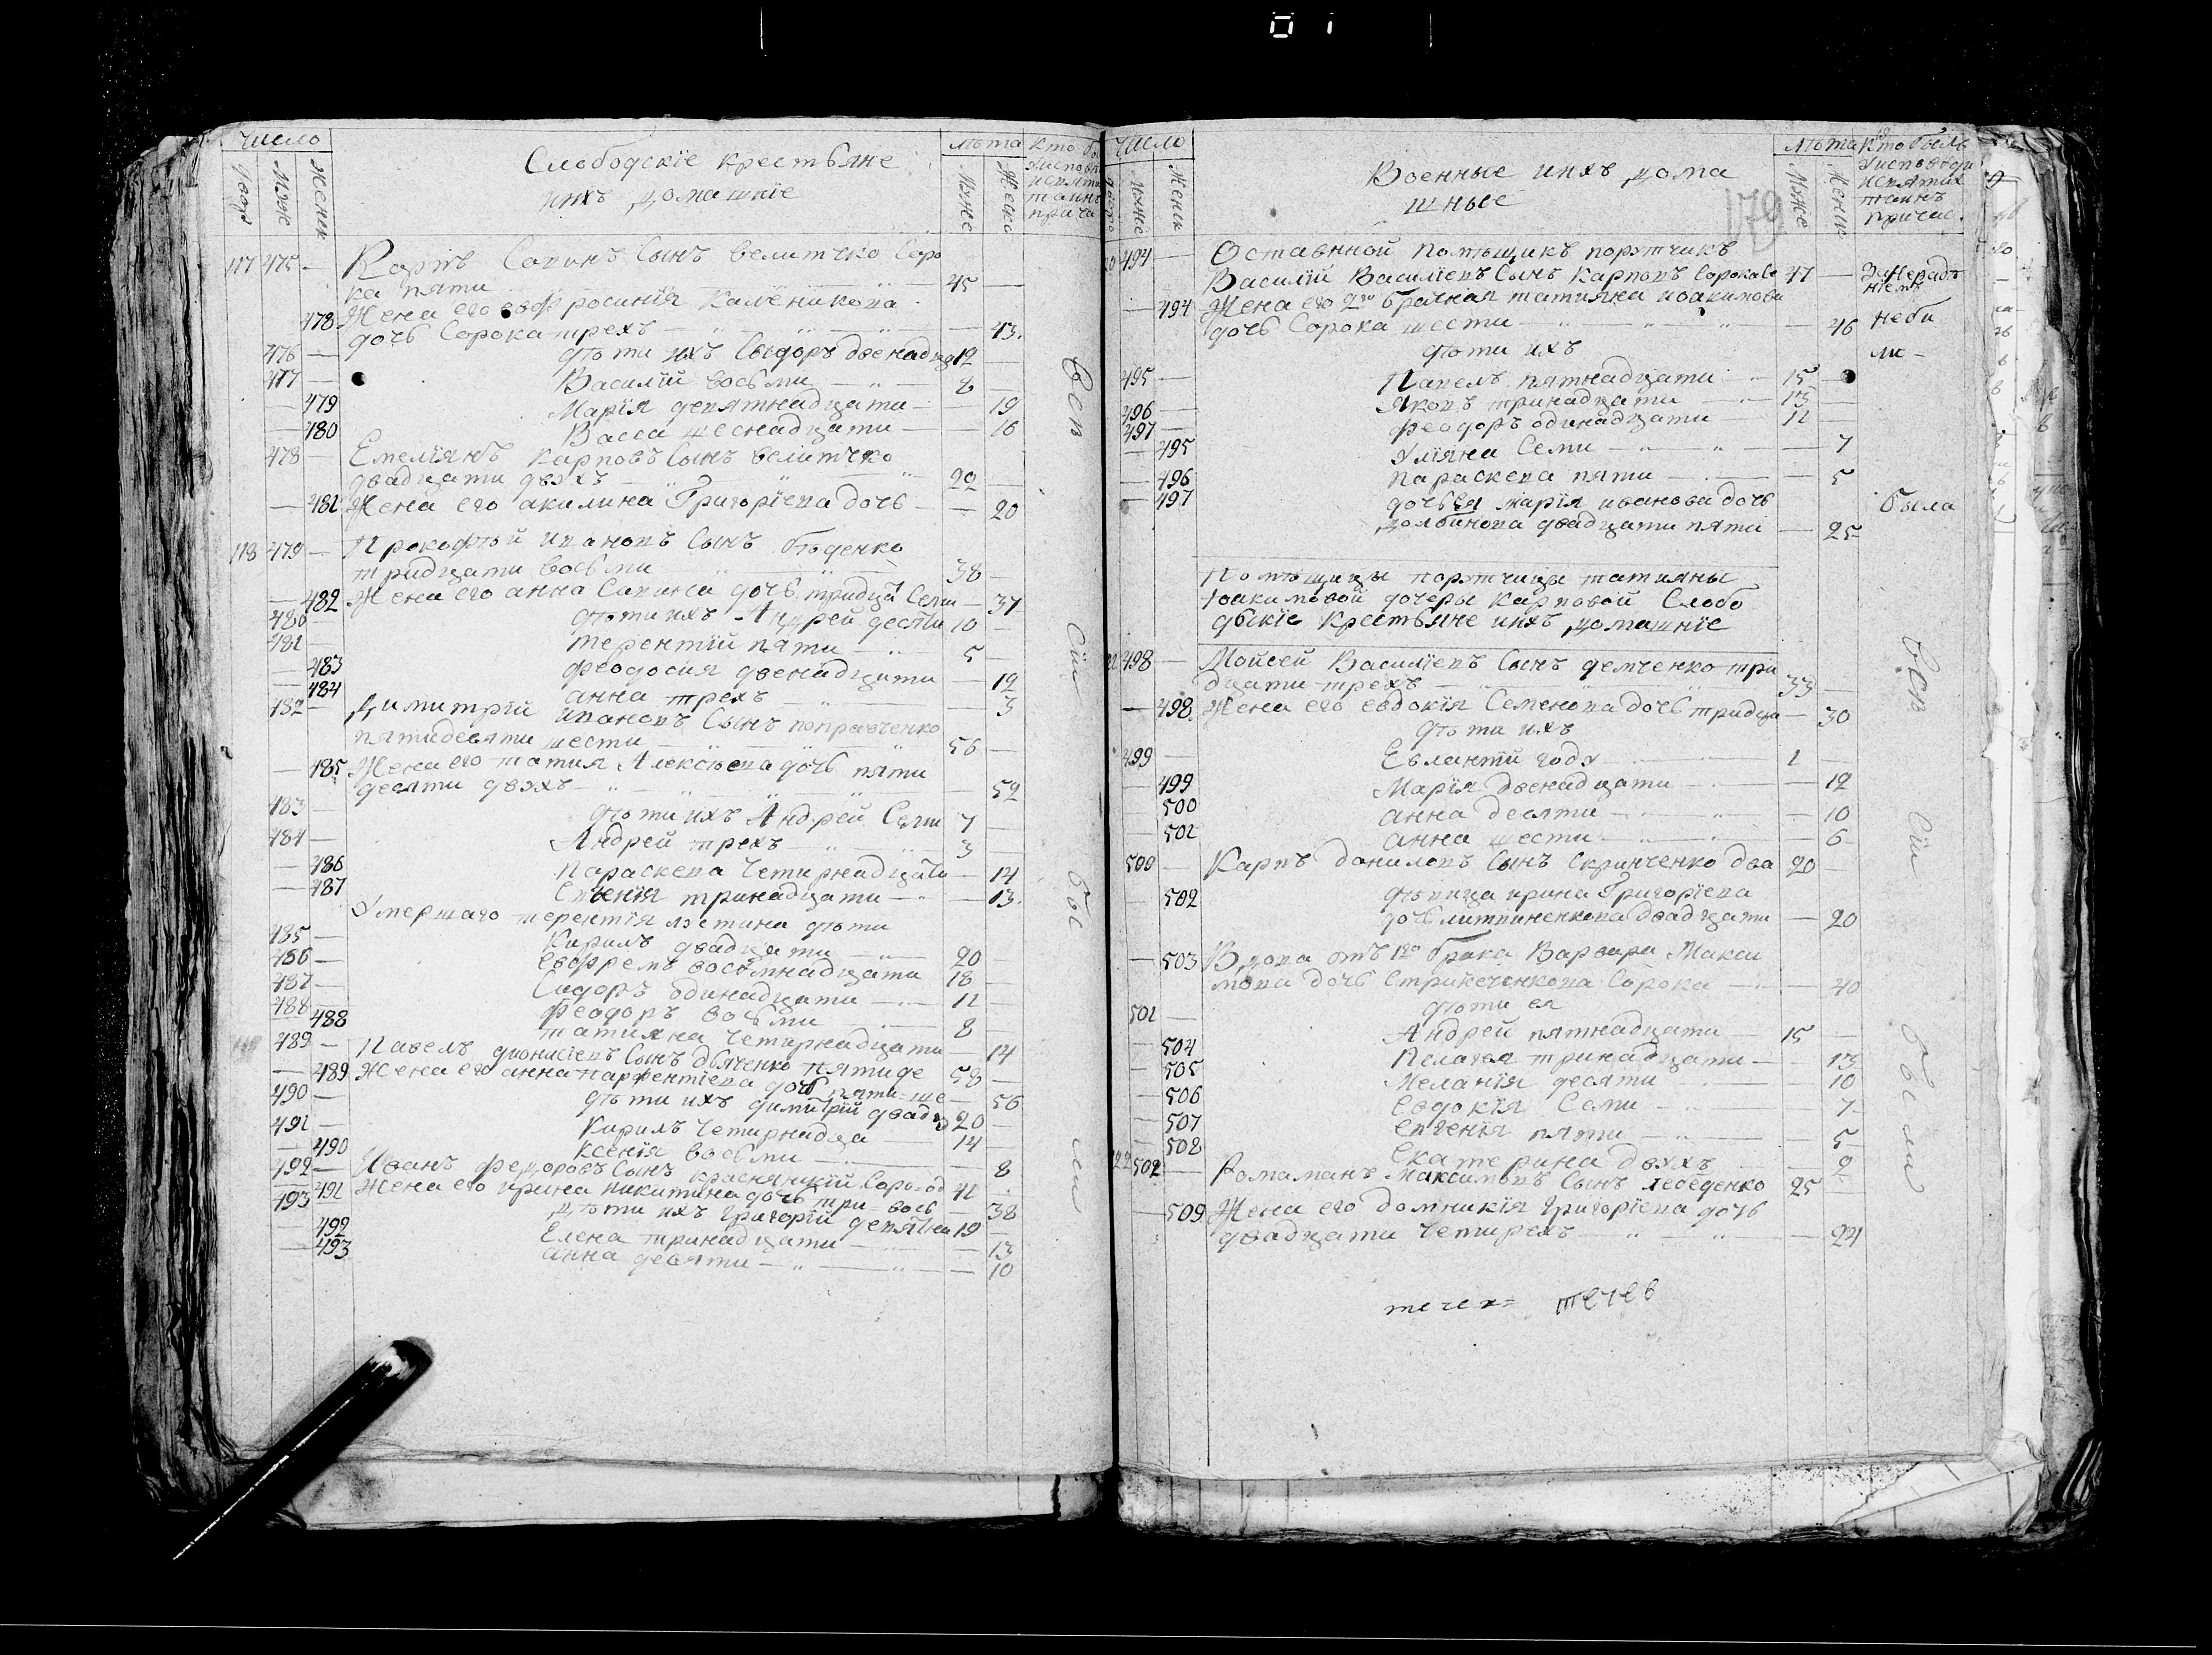 Число
Двор
Муже
Женск
Слободскіе крестьяне
ихъ домашніе
лѣта
Муже
Женс
Кто бы
117 475 — Карпъ Савинъ Сынъ величко Соро
ка пяти 45 —
478 Жена его евфросинія Каленикова
дочь Сорока трехъ — 43.
476 — дѣти ихъ Сыдоръ двенадца 12 —
477 — Василій восьми 8 —
— 479 Марія девятнадцати — 19
— 480 Васса шеснадцати — 16
478 — Емеліянъ Карповъ Сынъ величко
двадцати двухъ 22 —
— 481 Жена его акилина Григоріева дочь — 20
118 479 — Прокофѣй Ивановъ Сынъ бѣденко
тридцати восьми 38 —
— 482 Жена его анна Савина дочь тридца Семи — 37
480 — дѣти ихъ Андрей десяти 10 —
481 — терентій пяти 5 —
— 483 феодосия двенадцати — 12
— 484 анна трехъ — 3
482 — Димитрій Ивановъ Сынъ поправченко
пятидесяти шести 56 —
— 485 Жена его татия Алексѣева дочь пяти
десяти двухъ — 52
483 — дѣти ихъ Андрей Семи 7 —
484 — Андрей трехъ 3 —
— 486 Параскева Четирнадцати — 14
— 487 Евгенія тринадцати — 13.
Умершаго терентія дѣти
485 — Кирилъ двадцати 20 —
486 — Евфремъ восѣмнадцати 18 —
487 — Сидоръ одинадцати 11 —
488 — Феодоръ восьми 8 —
488 татияна Четирнадцати — 14
489 — Павелъ дионисіевъ Сынъ дяченко пятиде 58 —
— 489 Жена его анна парфентіева дочь пяти=ше — 56
490 — дѣти ихъ димитрій двадц 20 —
491 — Кирилъ Четирнадца 14 —
— 490 Ксенія восьми — 8
492 — Иванъ федоровъ Сынъ краснянкій Соро=од 41 —
— 491 Жена его ирина Никитина дочь три=вось — 38
493 дѣти ихъ Григорій девятна 19 —
— 492 Елена тринадцати — 13
— 493 анна девяти — 10
Всѣ Сіи были
Число
Муже
Женск
Военные ихъ дома
шные
179
лѣта
Муже
Женск
Кто былъ
Уисповѣди
исвятих
таинъ
причас.
494 — Оставнной Помѣщикъ порутчикъ
Василій Василіевъ Сынъ Карповъ Сорокасе 47 — Занерадѣ
ніемъ
— 494 Жена его 2го брачная татияна иоакимова
дочь Сорока шести — 46 неби
дѣти ихъ ли —
495 — Павелъ пятнадцати 15 —
496 — Яковъ тринадцати 13 —
497 — феодоръ одинадцати 11 —
— 495 Уліяна Семи — 7
— 496 параскева пяти — 5
— 497 дочь ея марія иванова дочь была
долбинова двадцати пяти — 25
Помѣщицы порутчицы татияны
Іоакимовой дочеры Карповой Слобо
дькіе Крестьяне ихъ домашніе
498 — Мойсей Василіевъ Сынъ демченко три
дцати трехъ 33 —
— 498. Жена его евдокія Семенова дочь тридца — 30
дѣти ихъ
499 — Евлантій году 1
— 499 Марія двенадцати — 12
500 анна десяти — 10
— 501 анна шести — 6
500 — Карпъ даниловъ Сынъ Скринченко два 20 —
502 дѣвица ирина Григоріева
дочь литвиненкова двадцати — 20
— 503 Вдова отъ 1го брака Варвара Макси
мова дочь Сорока — 40
дѣти ея
501 — Андрей пятнадцати 15 —
— 504 Пелагея тринадцати — 13
— 505 Меланія десяти — 10
— 506 Евдокія Семи — 7
— 507 Евгенія пяти — 5
— 508 Екатерина двухъ — 2
122 502 — Romаманъ Максимовъ Сынъ лебеденко 25 —
— 509 Жена его домникія Григоріева дочь
двадцати Четирехъ — 24
Всѣ Сіи были